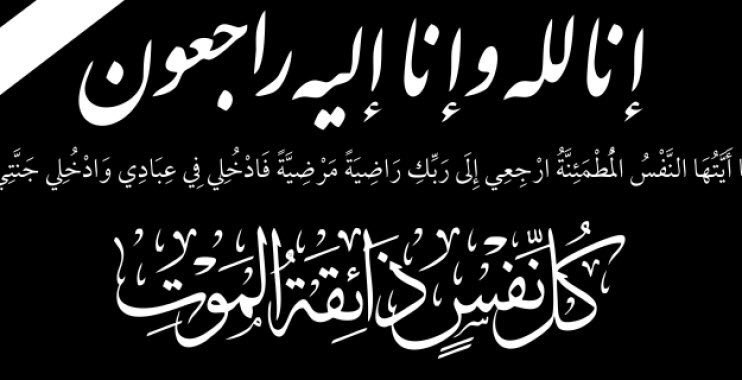 إنا لله وإنا إليه راجعون
ا أَيَّتُهَا النَّفْسُ الْمُطْمَئِنَّةُ ارْجِعِي إِلَى رَبِّكِ رَاضِيَةً مَرْضِيَّةً فَادْخُلِي فِي عِبَادِي وَادْخُلِي جَنَّتِي
كُلُّ نَفْسٍ ذَائِقَةُ الْمَوْتِ